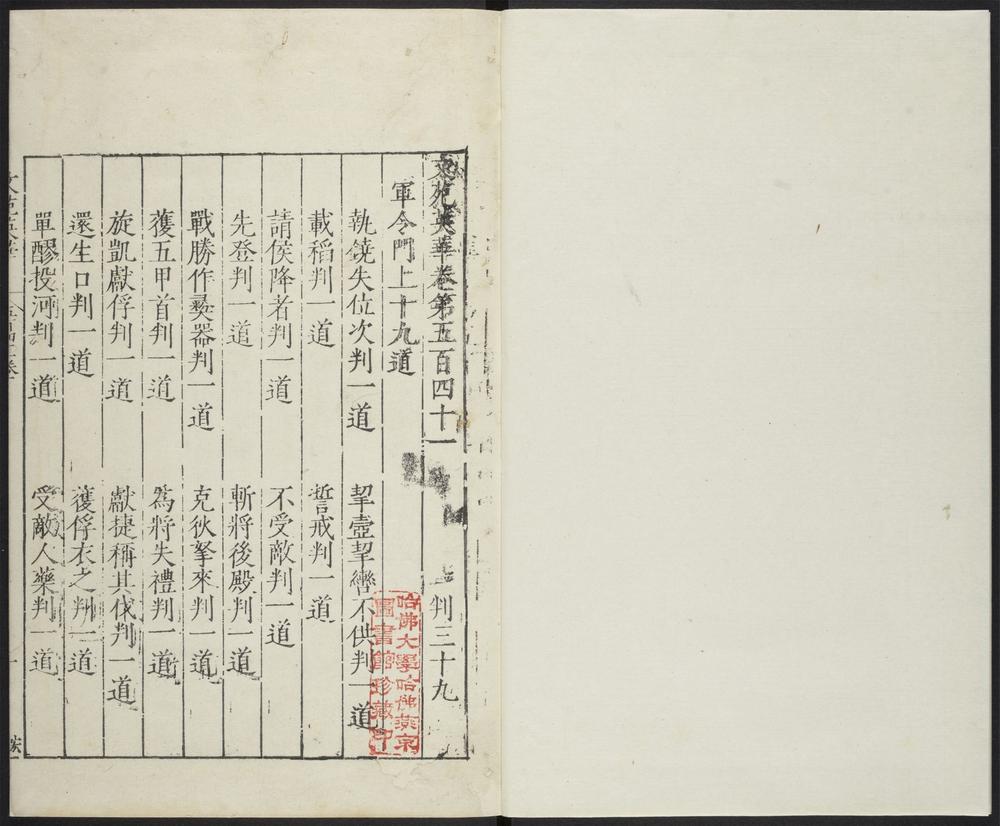 文苑英華卷第五百四十一 判三十九
軍令門上十九道
執鐃失位次判一道 挈壺挈轡不供判一道
載稻判一道 誓戒判一道
請侯降者判一道 不受敵判一道
先登判一道 斬將後殿判一道
戰勝作彝器判一道 克狄拏來判一道
獲五甲首判一道 為將失禮判一道
旋凱獻俘判一道 獻捷稱其伐判一道
還生口判一道 獲俘衣之判一道
單醪投河判一道 受敵人藥判一道
哈佛大學哈佛燕京
圖書館珍藏印